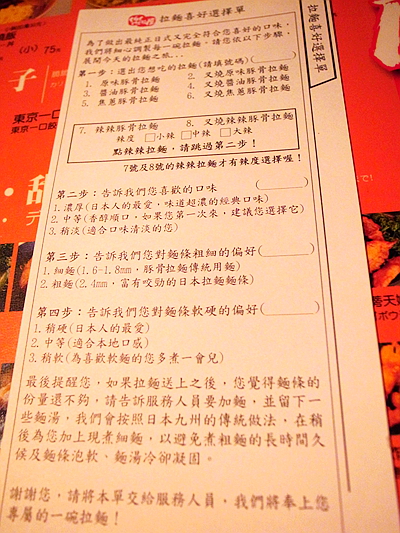 拉麵喜好選擇單
為了做出最純正日式又完全符合您喜好的口味,
我們將細心調製每一碗拉麵,請您依以下步驟,
展開今天的拉麵之旅...
第一步:選出您想吃的拉麵(請填號碼)(　　)
1. 原味豚骨拉麵　2. 叉燒原味豚骨拉麵
3. 醬油豚骨拉麵　4. 叉燒醬油豚骨拉麵
5. 焦蔥豚骨拉麵　6. 叉燒焦蔥豚骨拉麵
7. 辣辣豚骨拉麵　8. 叉燒辣辣豚骨拉麵
辣度 □小辣 □中辣 □大辣
點辣辣拉麵,請跳過第二步!
7號及8號的辣辣拉麵才有辣度選擇喔!
第二步:告訴我們您喜歡的口味(　　)
1. 濃厚(日本人的最愛,味道超濃的經典口味)
2. 中等(香醇順口,如果您第一次來,建議您選擇它)
3. 稍淡(適合口味清淡的您)
第三步:告訴我們您對麵條粗細的偏好(　　)
1. 細麵(1.6-1.8mm,豚骨拉麵傳統用麵)
2. 粗麵(2.4mm,富有咬勁的日本拉麵麵條)
第四步:告訴我們您對麵條軟硬的偏好(　　)
1. 稍硬(日本人的最愛)
2. 中等(適合本地口感)
3. 稍軟(為喜歡軟麵的您多煮一會兒)
最後提醒您,如果拉麵送上之後,您覺得麵條的
份量還不夠,請告訴服務人員要加麵,並留下一
些麵湯,我們會按照日本九州的傳統做法,在稍
後為您加上現煮細麵,以避免煮粗麵的長時間久
候及麵條泡軟、麵湯冷卻凝固。
謝謝您,請將本單交給服務人員,我們將奉上您
專屬的一碗拉麵!
拉麵喜好選擇單
(小) 75
子
東京一口
東京一口餃
甜
デ